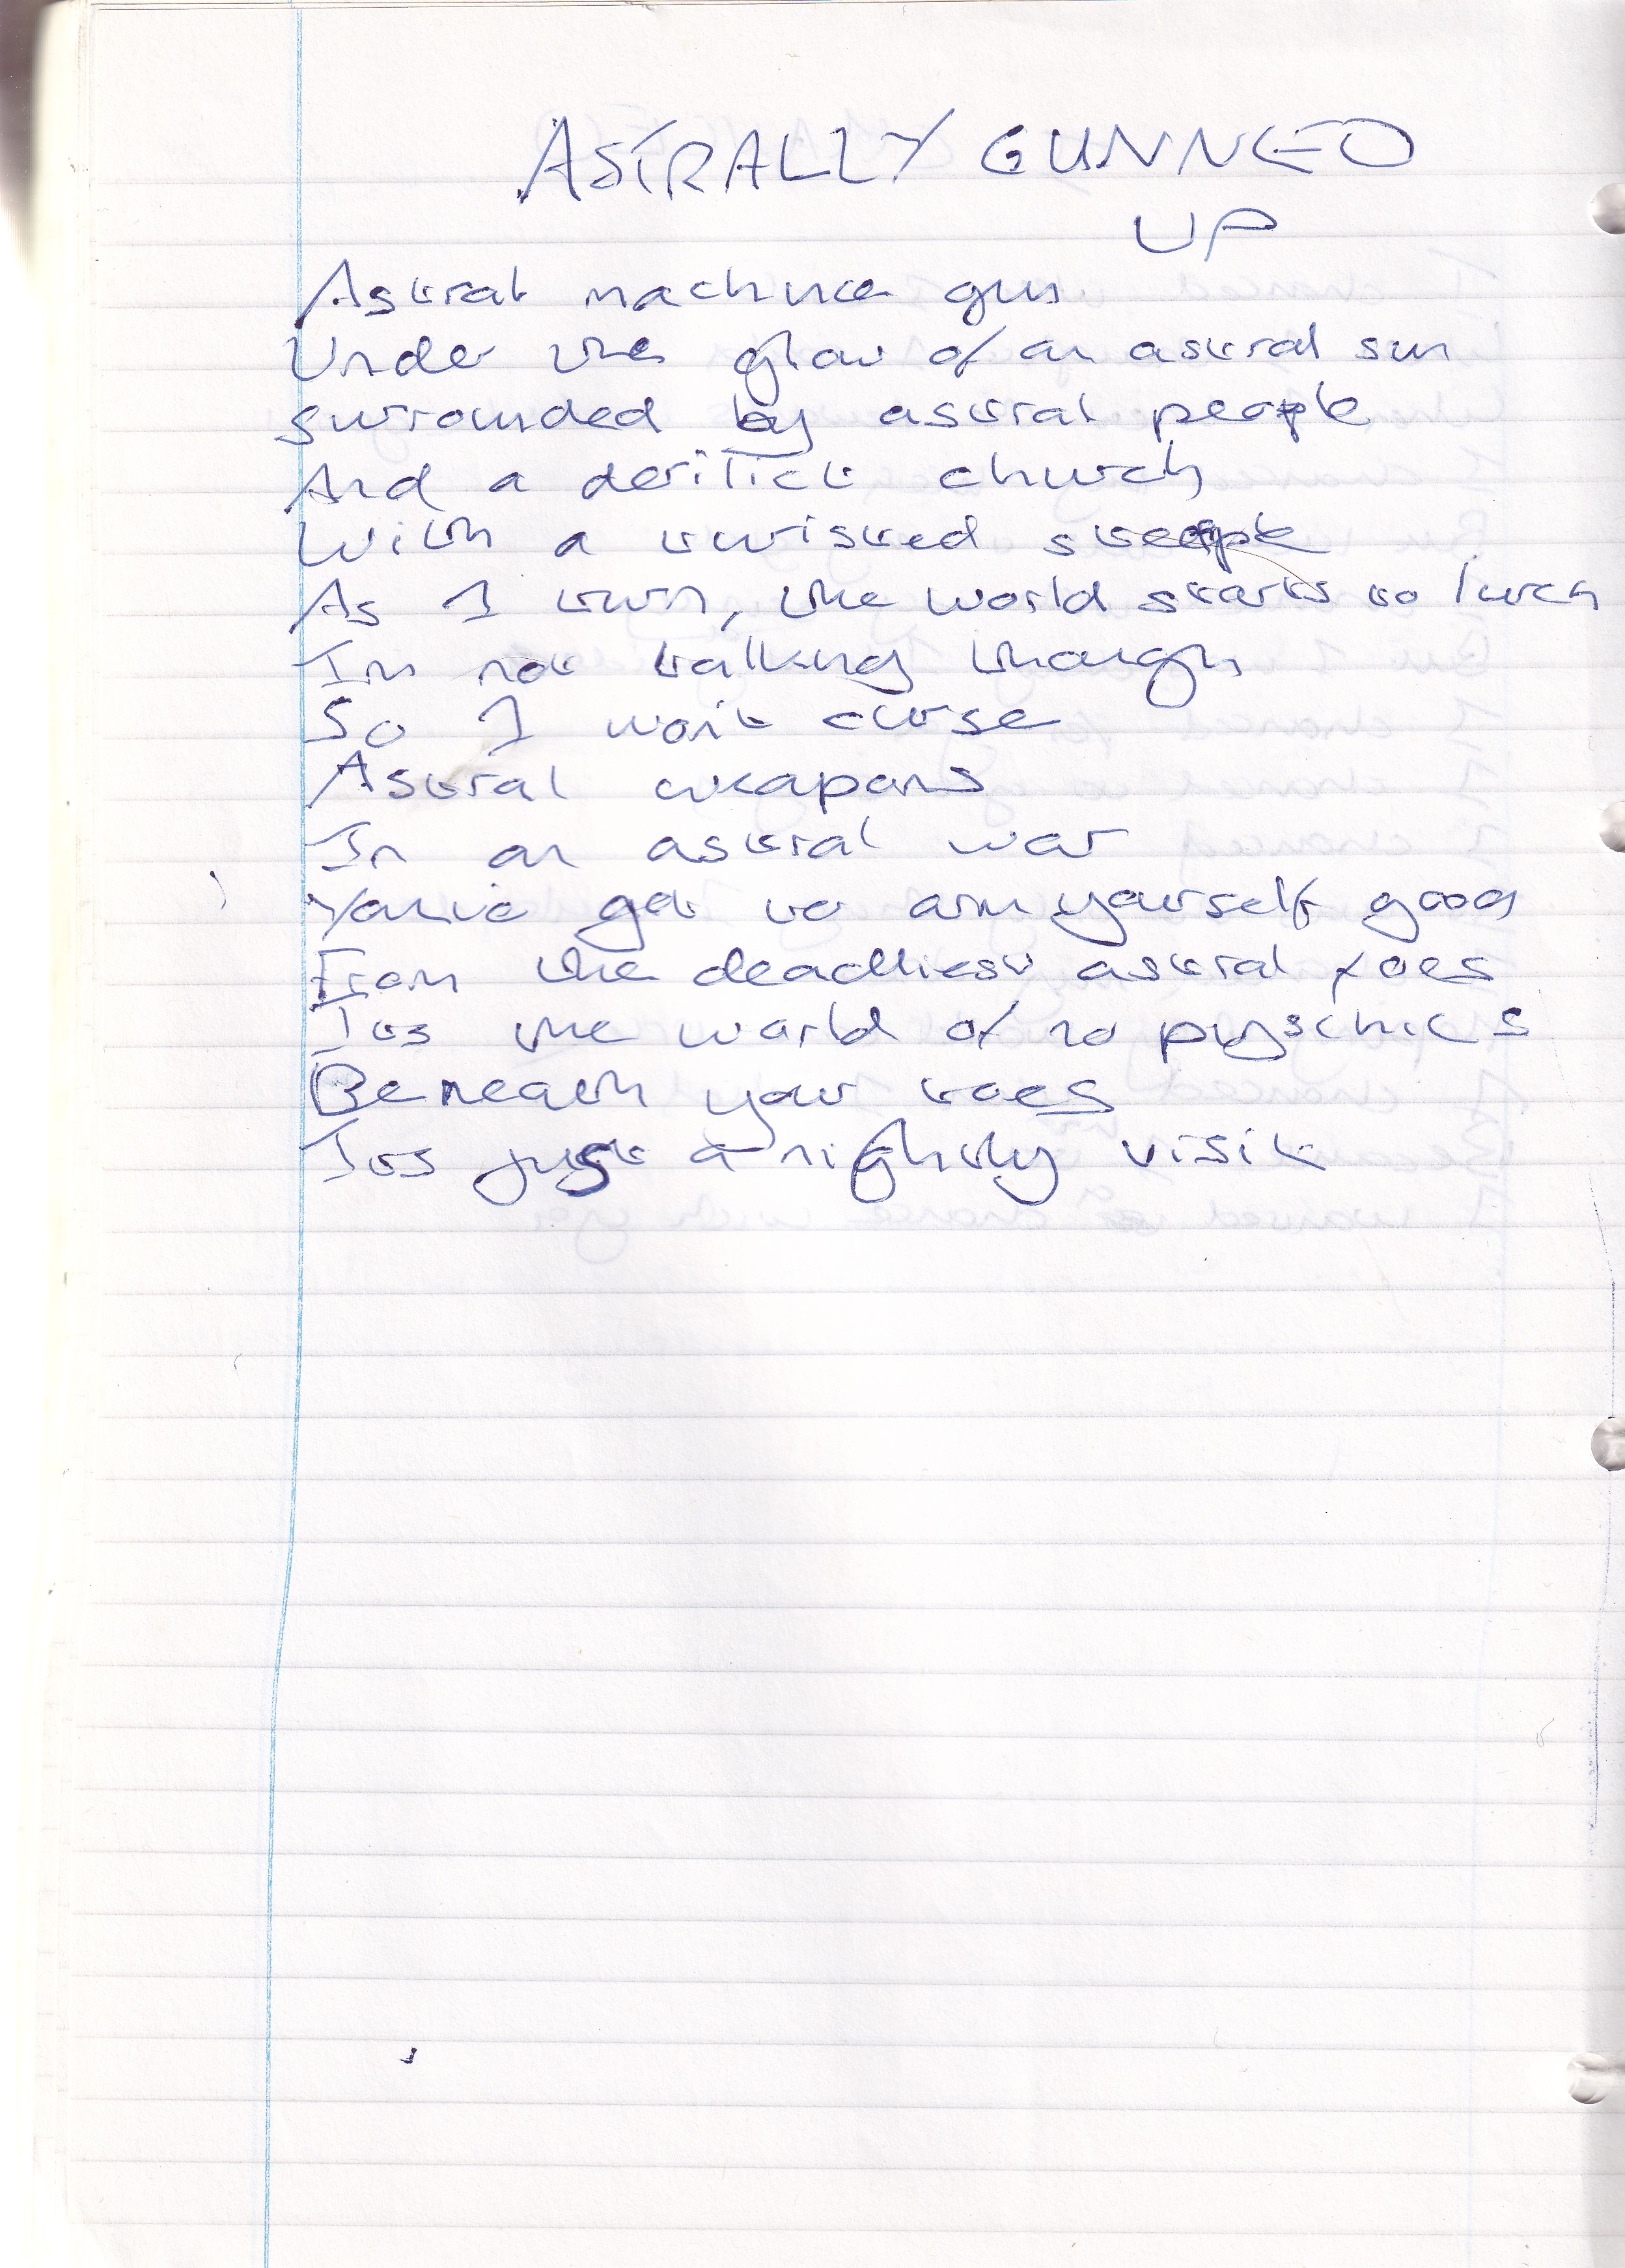 ASTRALLY GUNNED
UP
Astral machine gun
Under the glow of an astral sun
surrounded by astral people
And a derilict church
With a twisted steeple
As I turn, the world starts to lurch
Im not talking though
So I wont curse
Astral weapons
In an astral war
You've got to arm yourself good
From the deadliest astral foes
Its the world of no pyschics
Beneath your toes
Its just a nightly visit